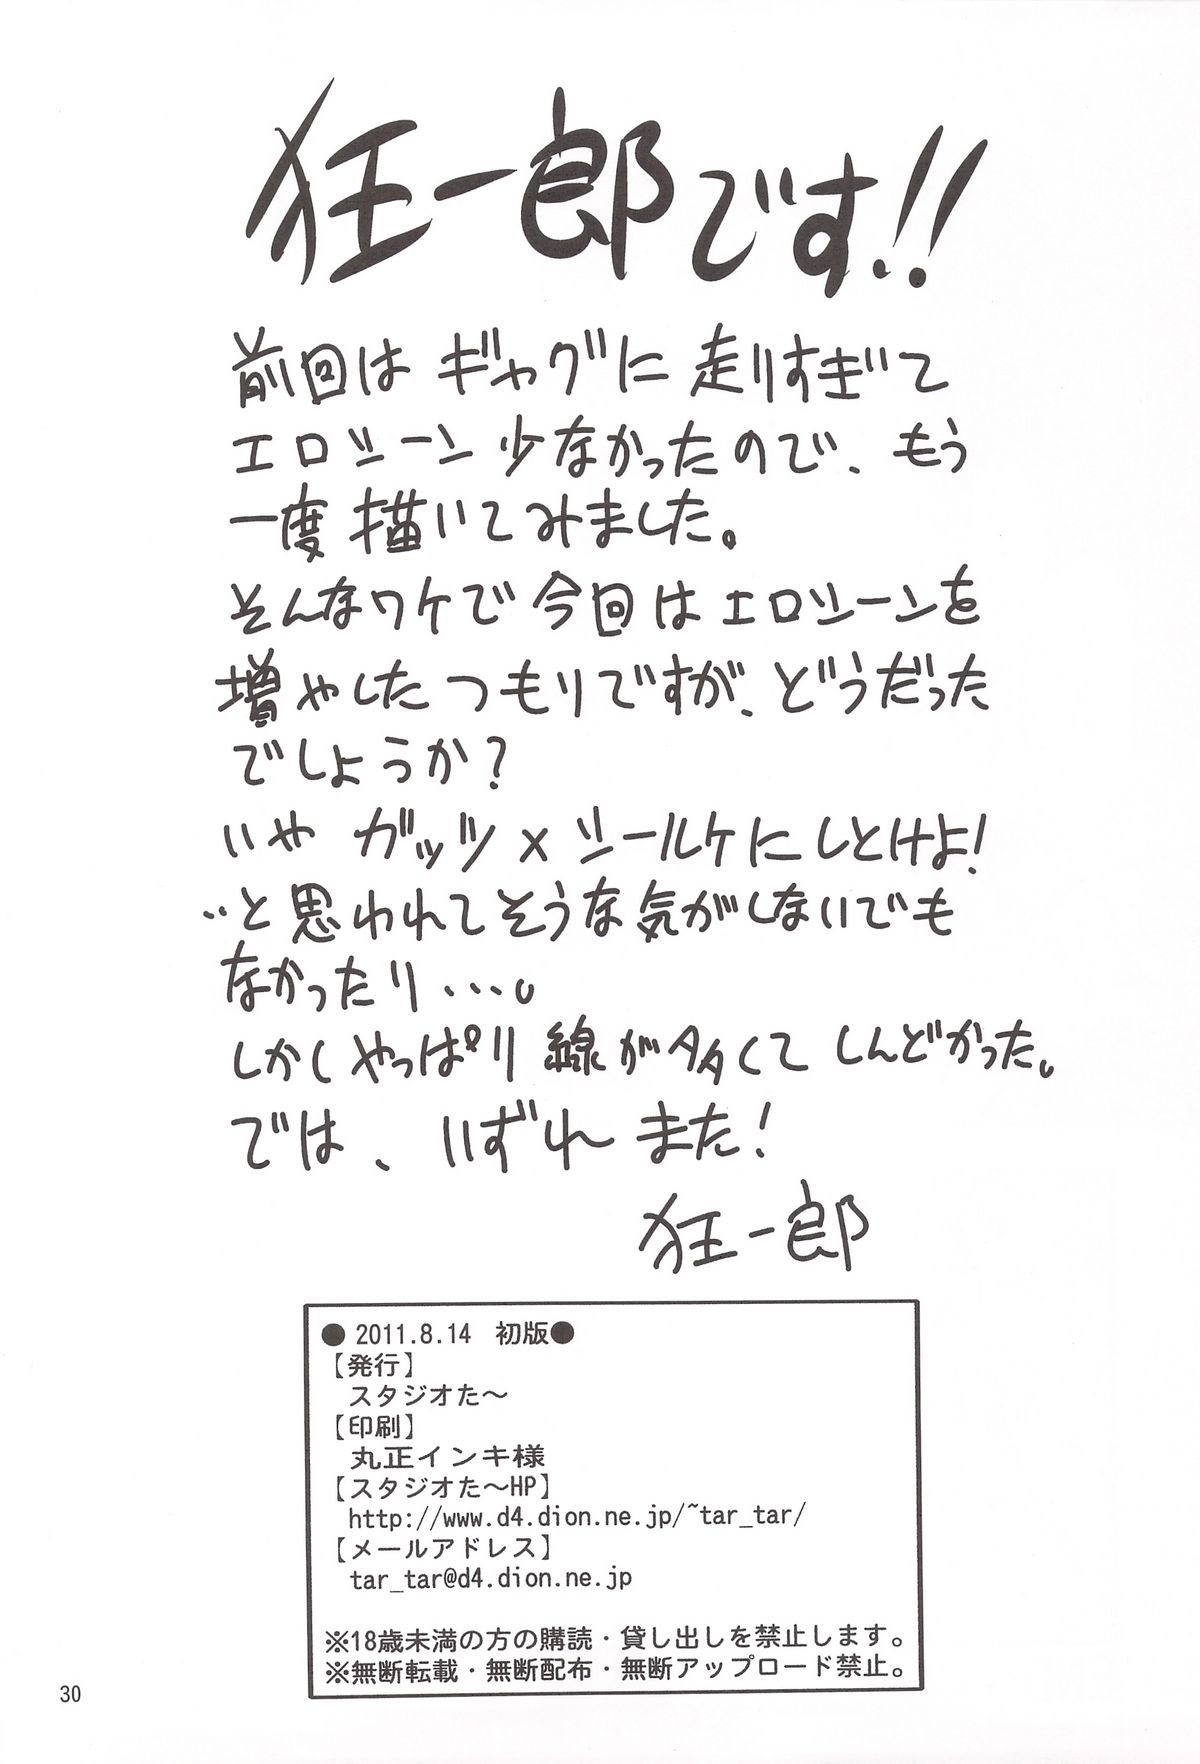 狂一郎です!!
前回はギャグに走りすぎて
エロシーン少なかったので、もう
一度描いてみました。
そんなワケで今回はエロシーンを
増やしたつもりですが、どうだった
でしょうか?
いやガッツ×シールケにしとけよ!
‥と思われてそうな気がしないでも
なかったり・・・。
しかしやっぱり線が多くてしんどかった。
では、いずれまた!
狂一郎
●2011.8.14 初版●
【発行】
スタジオた～
【印刷】
丸正インキ様
【スタジオた～HP】
http://www.d4.dion.ne.jp/~tar_tar/
【メールアドレス】
tar_tar@d4.dion.ne.jp
※18歳未満の方の購読・貸し出しを禁止します。
※無断転載・無断配布・無断アップロード禁止。
30